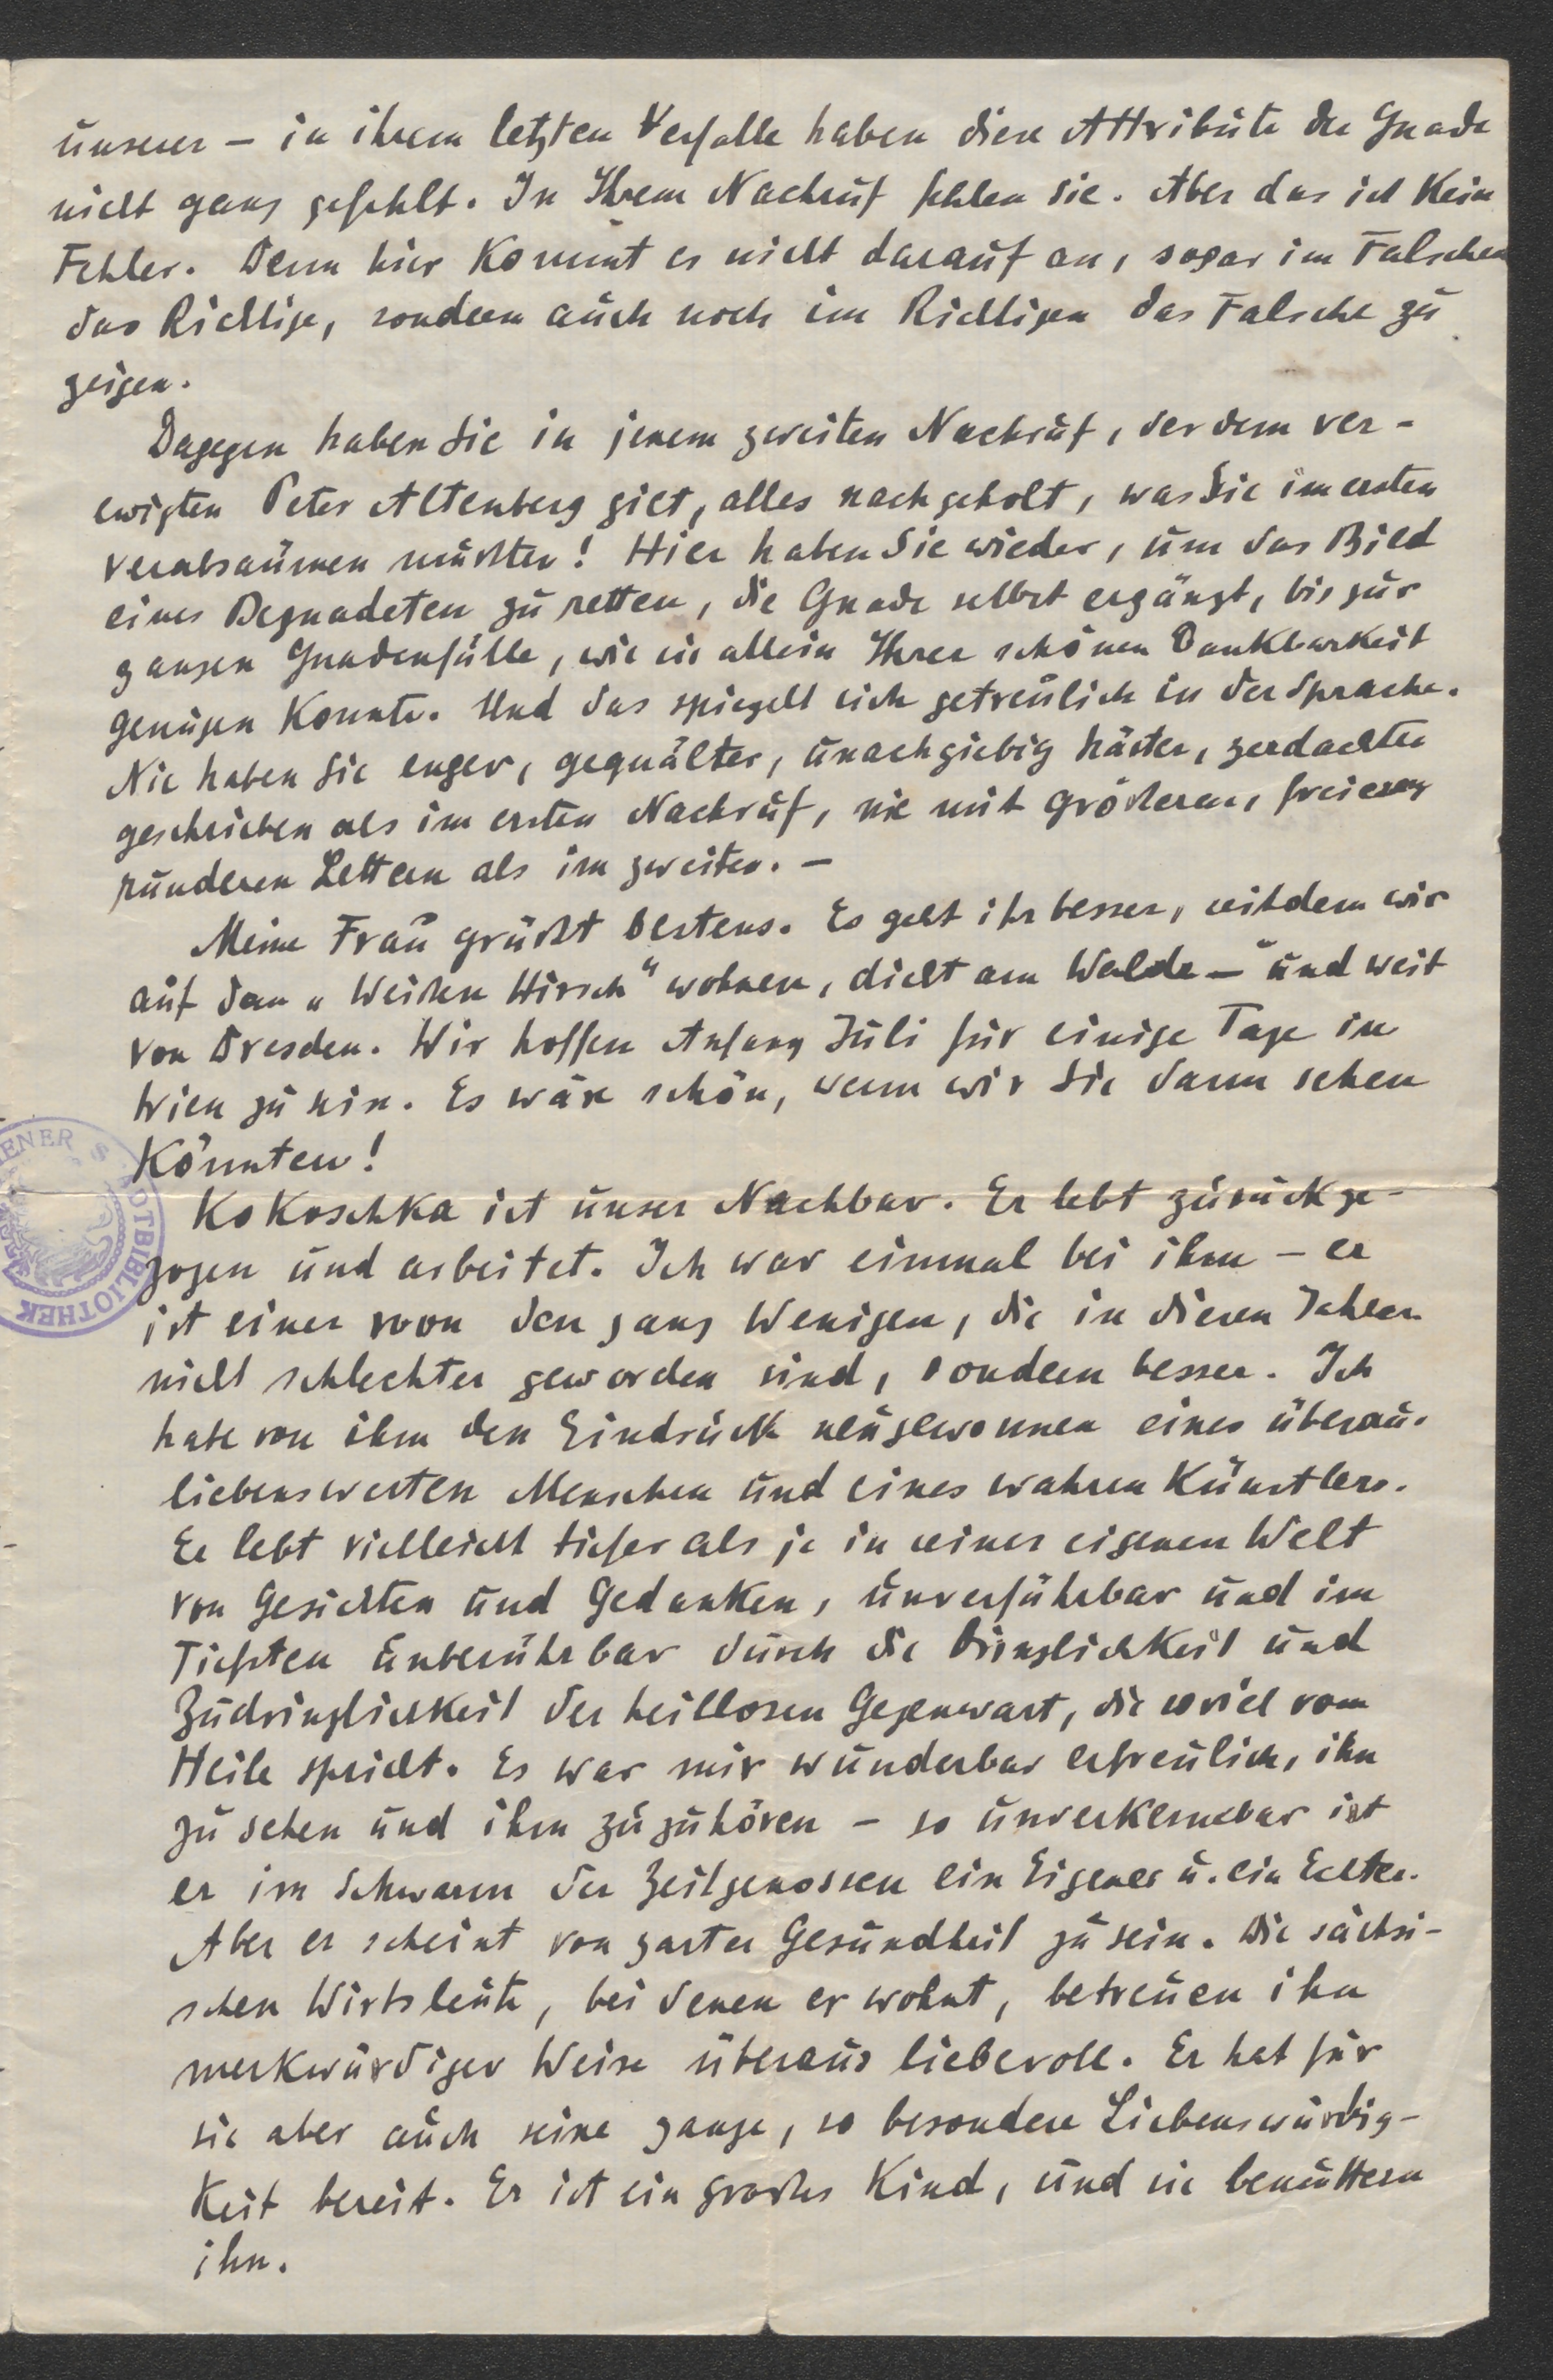 unserer – in ihrem letzten Verfalle haben diese Attribute der Gnade
nicht ganz gefehlt. In Ihrem Nachruf fehlen sie. Aber das ist kein
Fehler. Denn hier kommt es nicht darauf an, sogar im Falschen
das Richtige, sondern auch noch im Richtigen das Falsche zu
zeigen.
Dagegen haben Sie in jenem zweiten Nachruf, der dem ver-
ewigten Peter Altenberg gilt, alles nachgeholt, was Sie im ersten
verabsäumen mußten! Hier haben Sie wieder, um das Bild
eines Begnadeten zu retten, die Gnade selbst ergänzt, bis zur
ganzen Gnadenfülle, wie sie allein Ihrer schönen Dankbarkeit
genügen konnte. Und das spiegelt sich getreulich in der Sprache.
Nie haben Sie enger, gequälter, unachgiebig härter, zerdachter
geschrieben als im ersten Nachruf, nie mit größeren, freieren,
runderen Lettern als im zweiten. –
Meine Frau grüßt bestens. Es geht ihr besser, seitdem wir
auf dem „Weißen Hirsch" wohnen, dicht am Walde – und weit
von Dresden. Wir hoffen Anfang Juli für einige Tage in
Wien zu sein. Es wäre schön, wenn wir Sie dann sehen
könnten!
Kokoschka ist unser Nachbar. Er lebt zurückge-
zogen und arbeitet. Ich war einmal bei ihm – er
ist einer von den ganz Wenigen, die in diesen Jahren
nicht schlechter geworden sind, sondern besser. Ich
habe von ihm den Eindruck neugewonnen eines überaus
liebenswerten Menschen und eines wahren Künstlers.
Er lebt vielleicht tiefer als je in seiner eigenen Welt
von Gesichten und Gedanken, unverführbar und im
Tiefsten unberührbar durch die Dringlichkeit und
Zudringlichkeit der heillosen Gegenwart, die soviel vom
Heile spricht. Es war mir wunderbar erfreulich, ihn
zu sehen und ihm zuzuhören – so unverkennbar ist
er im Schwarm der Zeitgenossen ein Eigener u. ein Echter.
Aber er scheint von zarter Gesundheit zu sein. Die sächsi-
schen Wirtsleute, bei denen er wohnt, betreuen ihn
merkwürdiger Weise überaus liebevoll. Er hat für
sie aber auch seine ganze, so besondere Liebenswürdig-
keit bereit. Er ist ein großes Kind, und sie bemuttern
ihn.
WIENER STADTBIBLIOTHEK